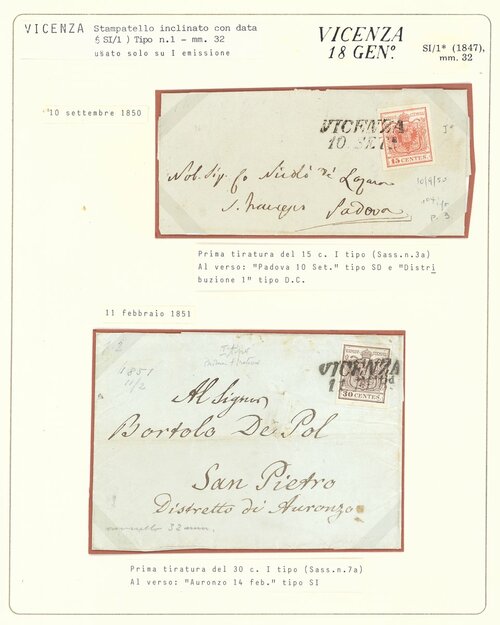 VICENZA Stampatello inclinato con data
( SI/1 ) Tipo n.1 - mm. 32
usato solo su I emissione
VICENZA
18 GEN°.
SI/1* (1847),
mm. 32
10 settembre 1850
VICENZA
10. SET
15 CENTES.
10/9/50
Nob. Sig. Co Nicolò de Lazara
Padova
P. 3
Prima tiratura del 15 c. I tipo (Sass.n.3a)
Al verso: "Padova 10 Set." tipo SD e "Distri
buzione 1" tipo D.C.
11 febbraio 1851
I tipo
1851
11/2
VICENZA
11
30 CENTES.
Al Signor
Bortolo De Pol
San Pietro
Distretto di Auronzo
annullo 32 mm.
Prima tiratura del 30 c. I tipo (Sass.n.7a)
Al verso: "Auronzo 14 feb." tipo SI